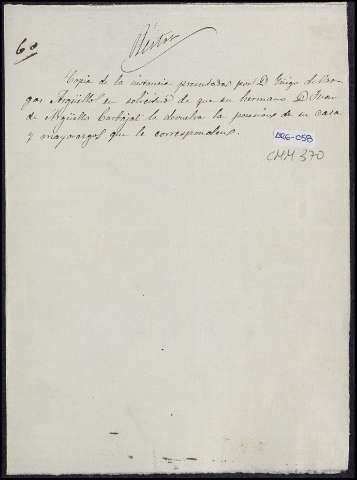 60
Copia de la instancia presentada por D. Iñigo de Var-
gas Argüelles en solicitud de que su hermano D. Juan
de Argüelles Carbajal le devuelva la posesion de su casa
y mayorazgos que le corresponden.
006-058
CMM 370